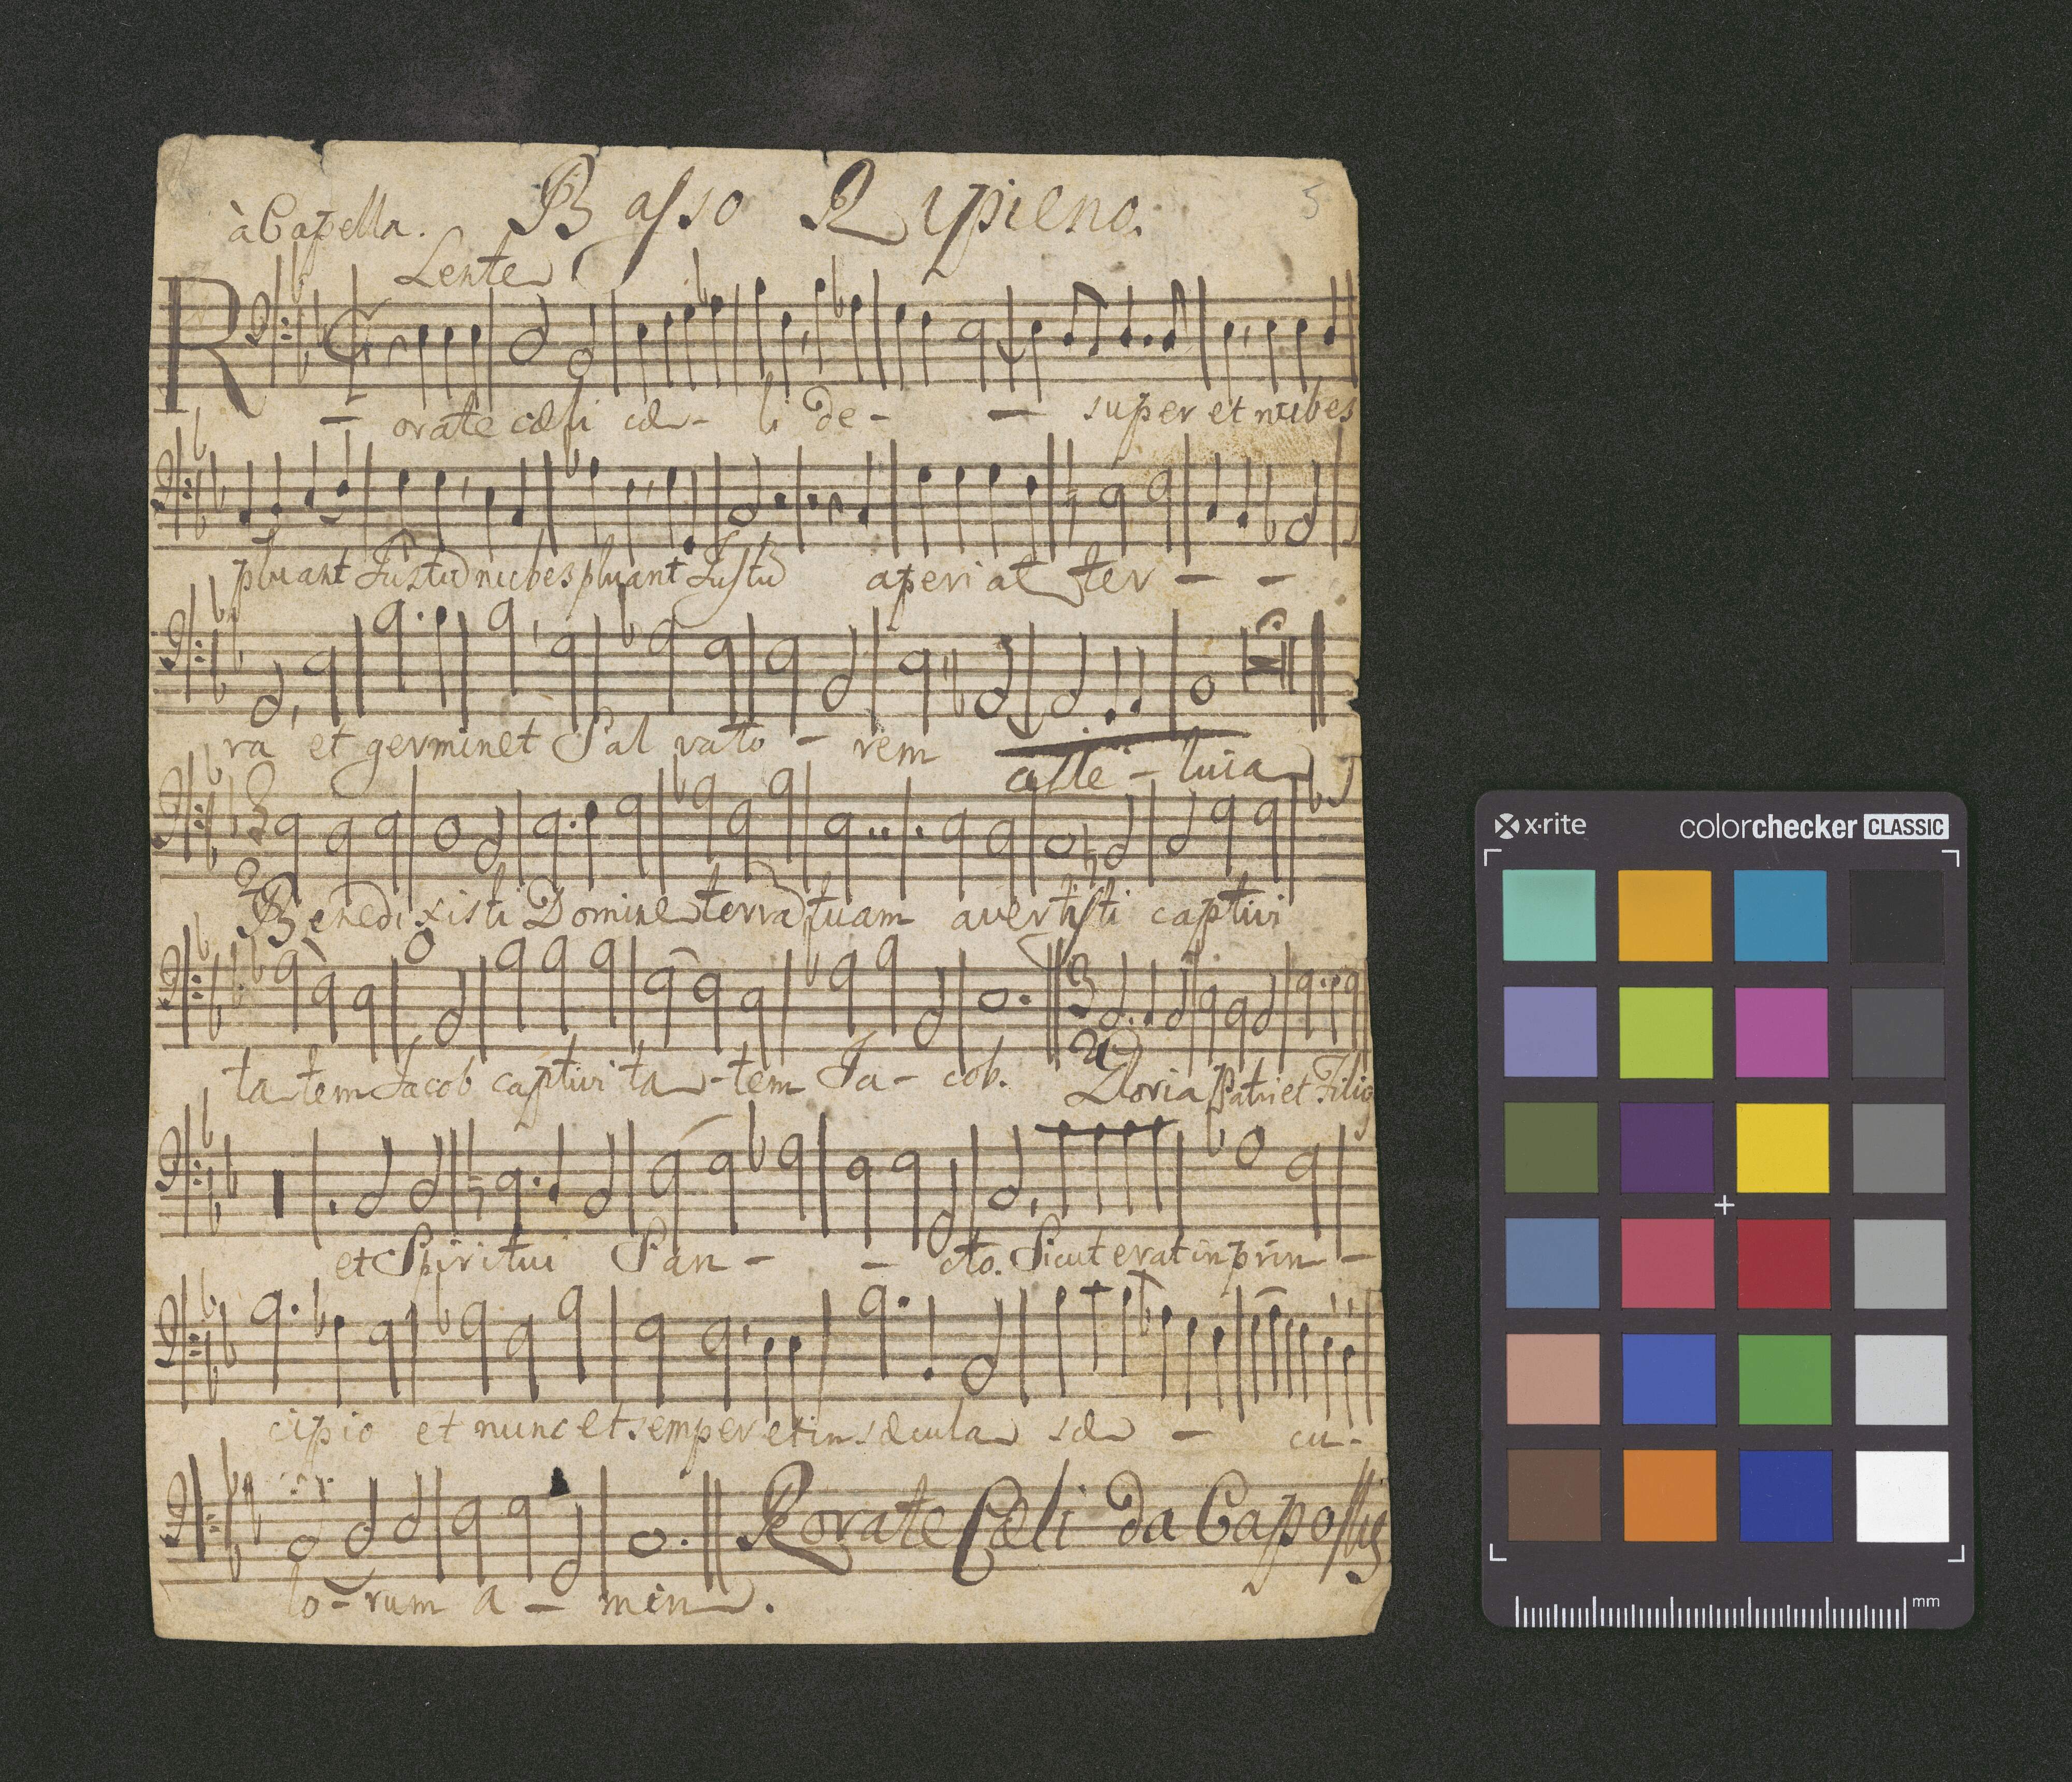 à Capella. Basso Rypieno. 5
Lente
R - orate cæli cæ - li De - - super et nubes
pluant Justū nubes pluant Justū aperiat ter - -
ra et germinet Salvato - rem alle - luia
3
2
Benedixisti Domine terrā tuam avertisti captivi
3
2
tatem Jacob captivita - tem Ja - cob. Gloria Patri et Filio
et Spiritui San - - cto. Sicut erat in prin -
cipio et nunc et semper et in sæcula sæ - cu -
Rorate Cæli Da Capo
lo - rum a - men.
x·rite colorchecker CLASSIC
mm